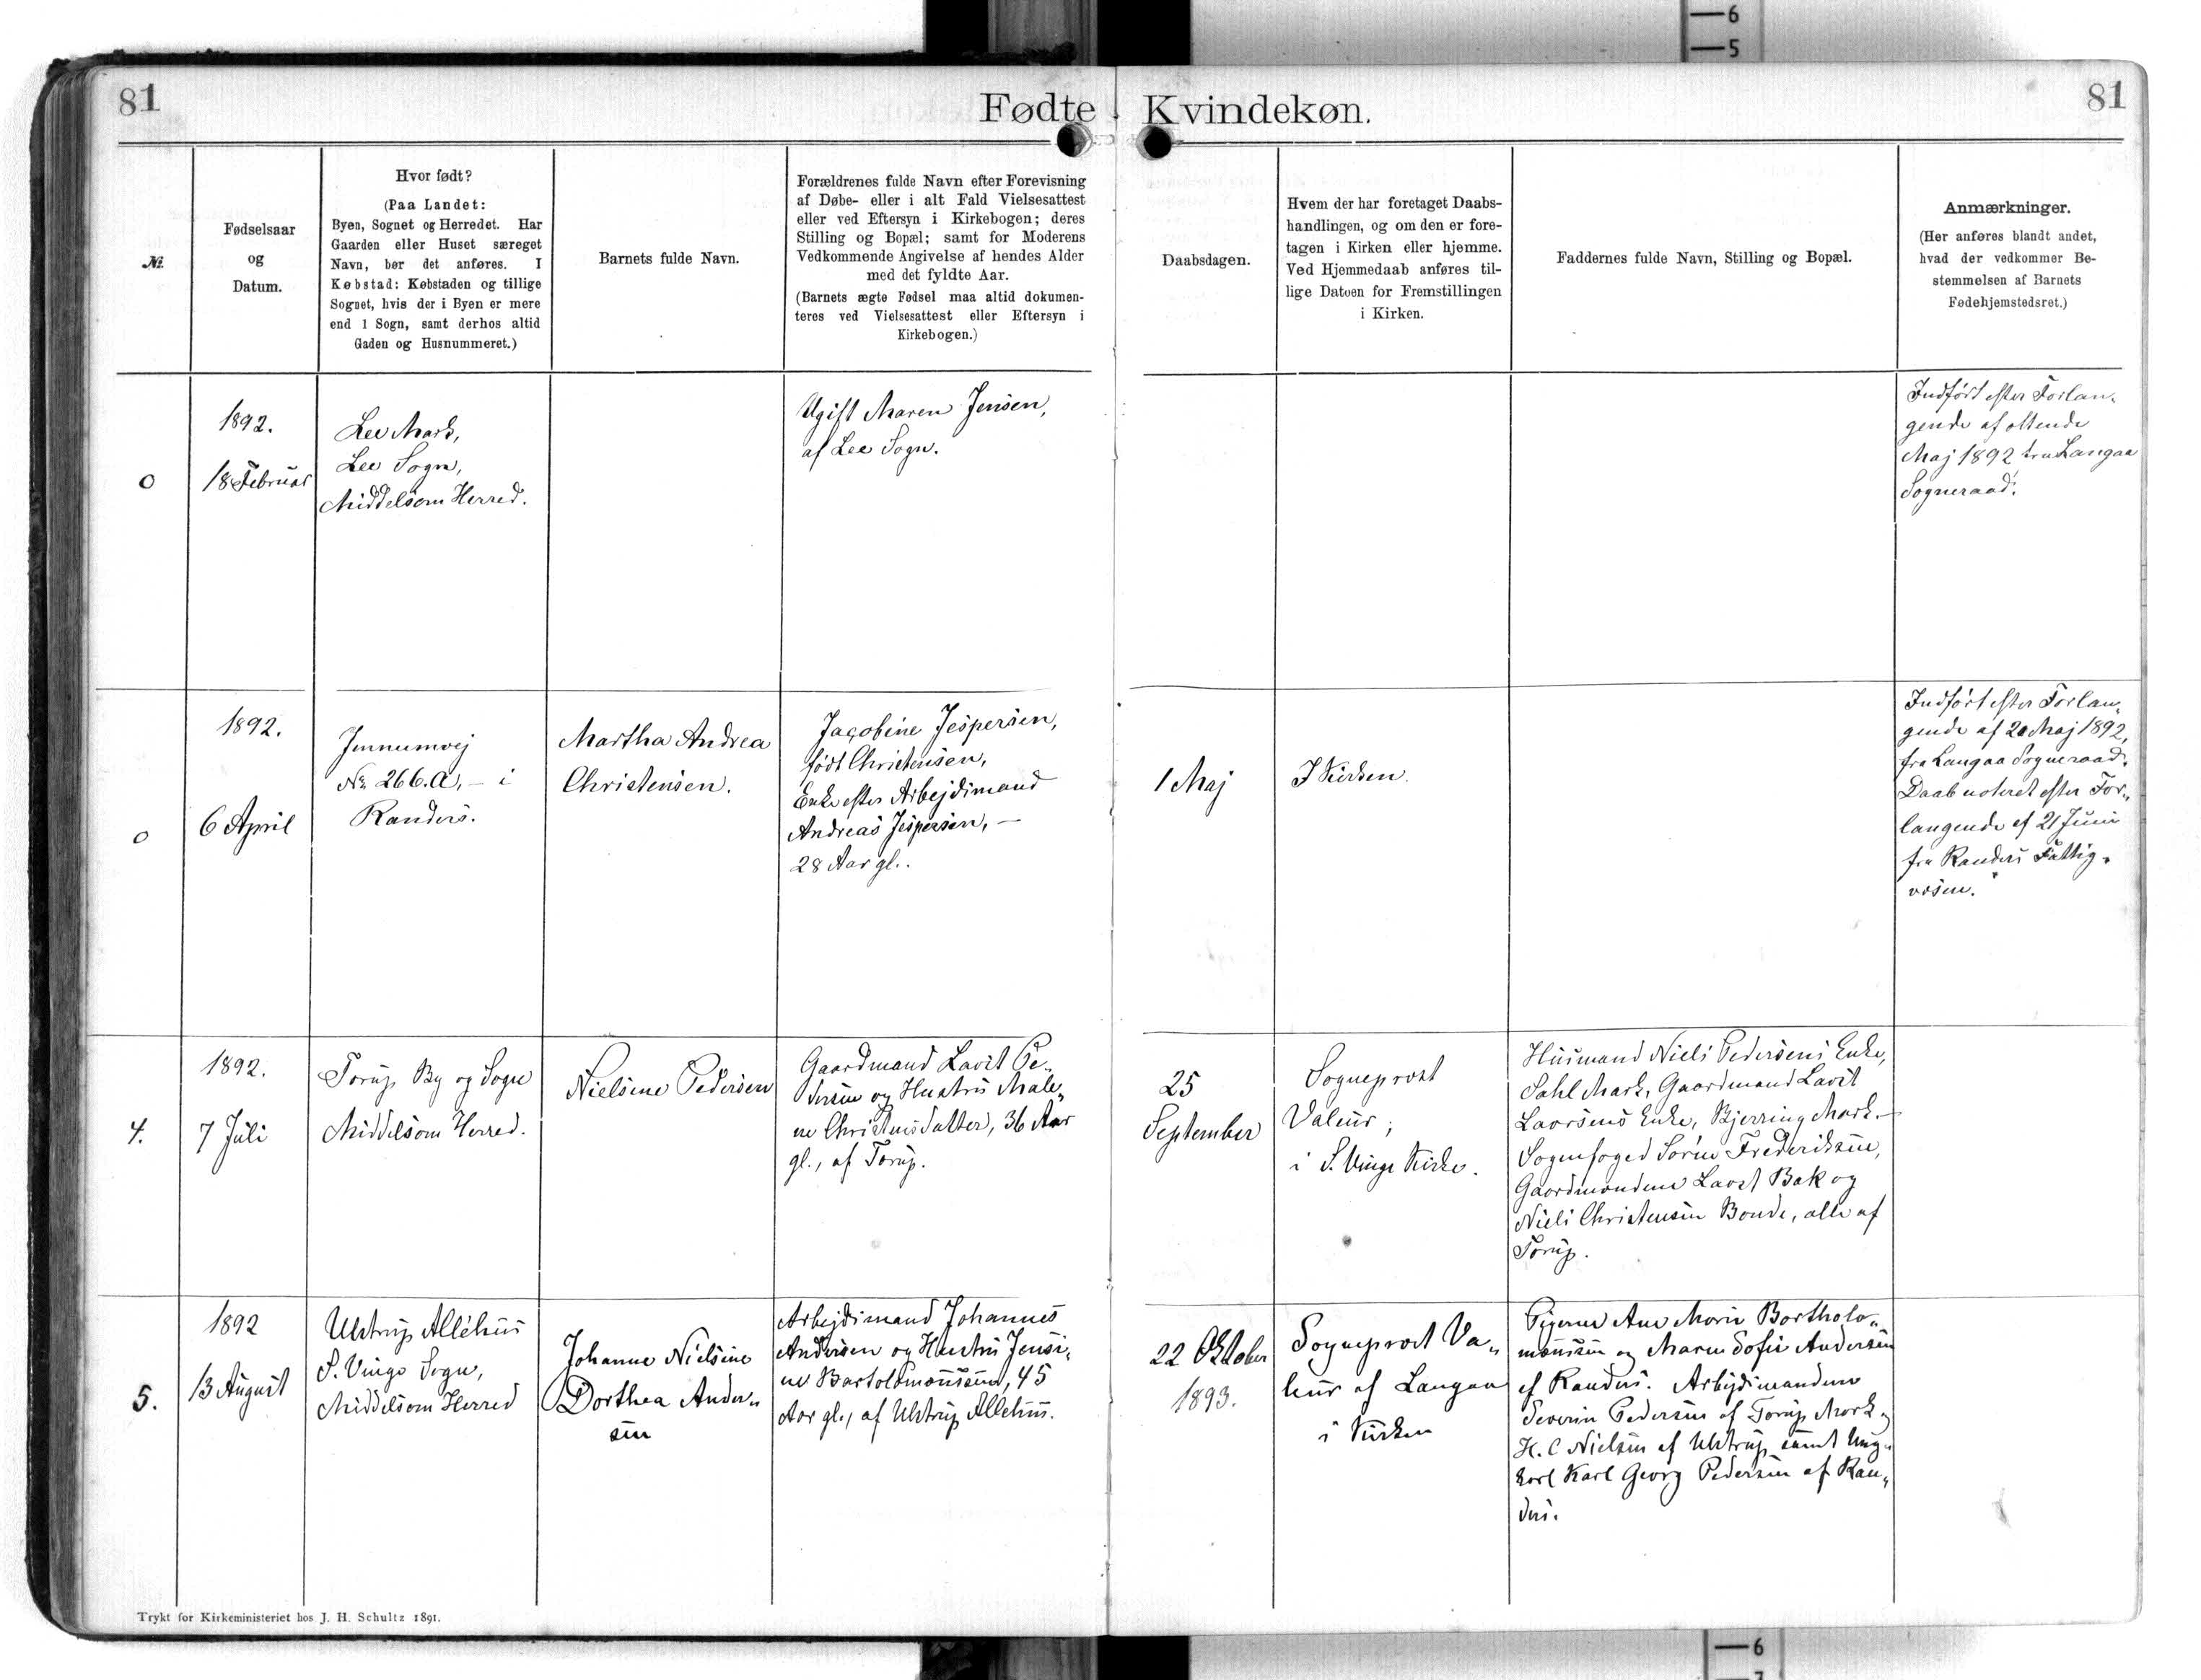 81
Fødte Kvindekøn.
81
№.
Fødselsaar
og
Datum.
Hvor født?
(Paa Landet:
Byen, Sognet og Herredet. Har
Gaarden eller Huset særeget
Navn, bør det anføres. I
Købstad: Købstaden og tillige
Sognet, hvis der i Byen er mere
end 1 Sogn, samt derhos altid
Gaden og Husnummeret.)
Barnets fulde Navn.
Forældrenes fulde Navn efter Forevisning
af Døbe- eller i alt Fald Vielsesattest
eller ved Eftersyn i Kirkebogen; deres
Stilling og Bopæl; samt for Moderens
Vedkommende Angivelse af hendes Alder
med det fyldte Aar.
(Barnets ægte Fødsel maa altid dokumen-
teres ved Vielsesattest eller Eftersyn i
Kirkebogen.)
Daabsdagen.
Hvem der har foretaget Daabs-
handlingen, og om den er fore-
tagen i Kirken eller hjemme.
Ved Hjemmedaab anføres til-
lige Datoen for Fremstillingen
i Kirken.
Faddernes fulde Navn, Stilling og Bopæl.
Anmærkninger.
(Her anføres blandt andet,
hvad der vedkommer Be-
stemmelsen af Barnets
Fødehjemstedsret.)
0
1892.
18 Februar
Lee Mark,
Lee Sogn,
Middelsom Herred.
Ugift Maren Jensen,
af Lee Sogn.
Indført efter Forlan-
gende af ottende
Maj 1892 fra Langaa
Sogneraad.
0
1892.
6 April
Jennumvej
Nr. 266.a, – i
Randers.
Martha Andrea
Christensen.
Jacobine Jespersen,
født Christensen,
Enke efter Arbejdsmand
Andreas Jespersen, –
28 Aar gl..
1 Maj
I Kirken.
Indført efter Forlan„
gende af 20 Maj 1892,
fra Langaa Sogneraad.
Daab noteret efter For„
langende af 21 Juni
fra Randers Fattig„
væsen.
4.
1892.
7 Juli
Torup By og Sogn
Middelsom Herred.
Nielsine Pedersen
Gaardmand Lavst Pe„
dersen og Hustru Male„
ne Christensdatter, 36 Aar
gl., af Torup.
25
September
Sogneprovst
Valeur;
i S. Vinge Kirke.
Husmand Niels Pedersens Enke,
Sahl Mark, Gaardmand Lavst
Laursens Enke, Bjerring Mark.
Sognefoged Søren Frederiksen,
Gaardmændene Lavst Bak og
Niels Christensen Bonde, alle af
Torup.
5.
1892
13 August
Ulstrup Alléhus
S. Vinge Sogn,
Middelsom Herred
Johanne Nielsine
Dorthea Ander„
sen
Arbejdsmand Johannes
Andersen og Hustru Jensi„
ne Bartolomæussen, 45
Aar gl., af Ulstrup Alléhus.
22 Oktober
1893.
Sogneprovst Va„
leur af Langaa
i Kirken
Pigerne Ane Marie Bartholo„
mæussen og Maren Sofie Andersen
af Randers. Arbejdsmændene
Severin Pedersen af Torup Mark,
H. C Nielsen af Ulstrup samt Ung„
karl Karl Georg Pedersen af Ran„
ders.
Trykt for Kirkeministeriet hos J. H. Schultz 1891.
6
5
6
7